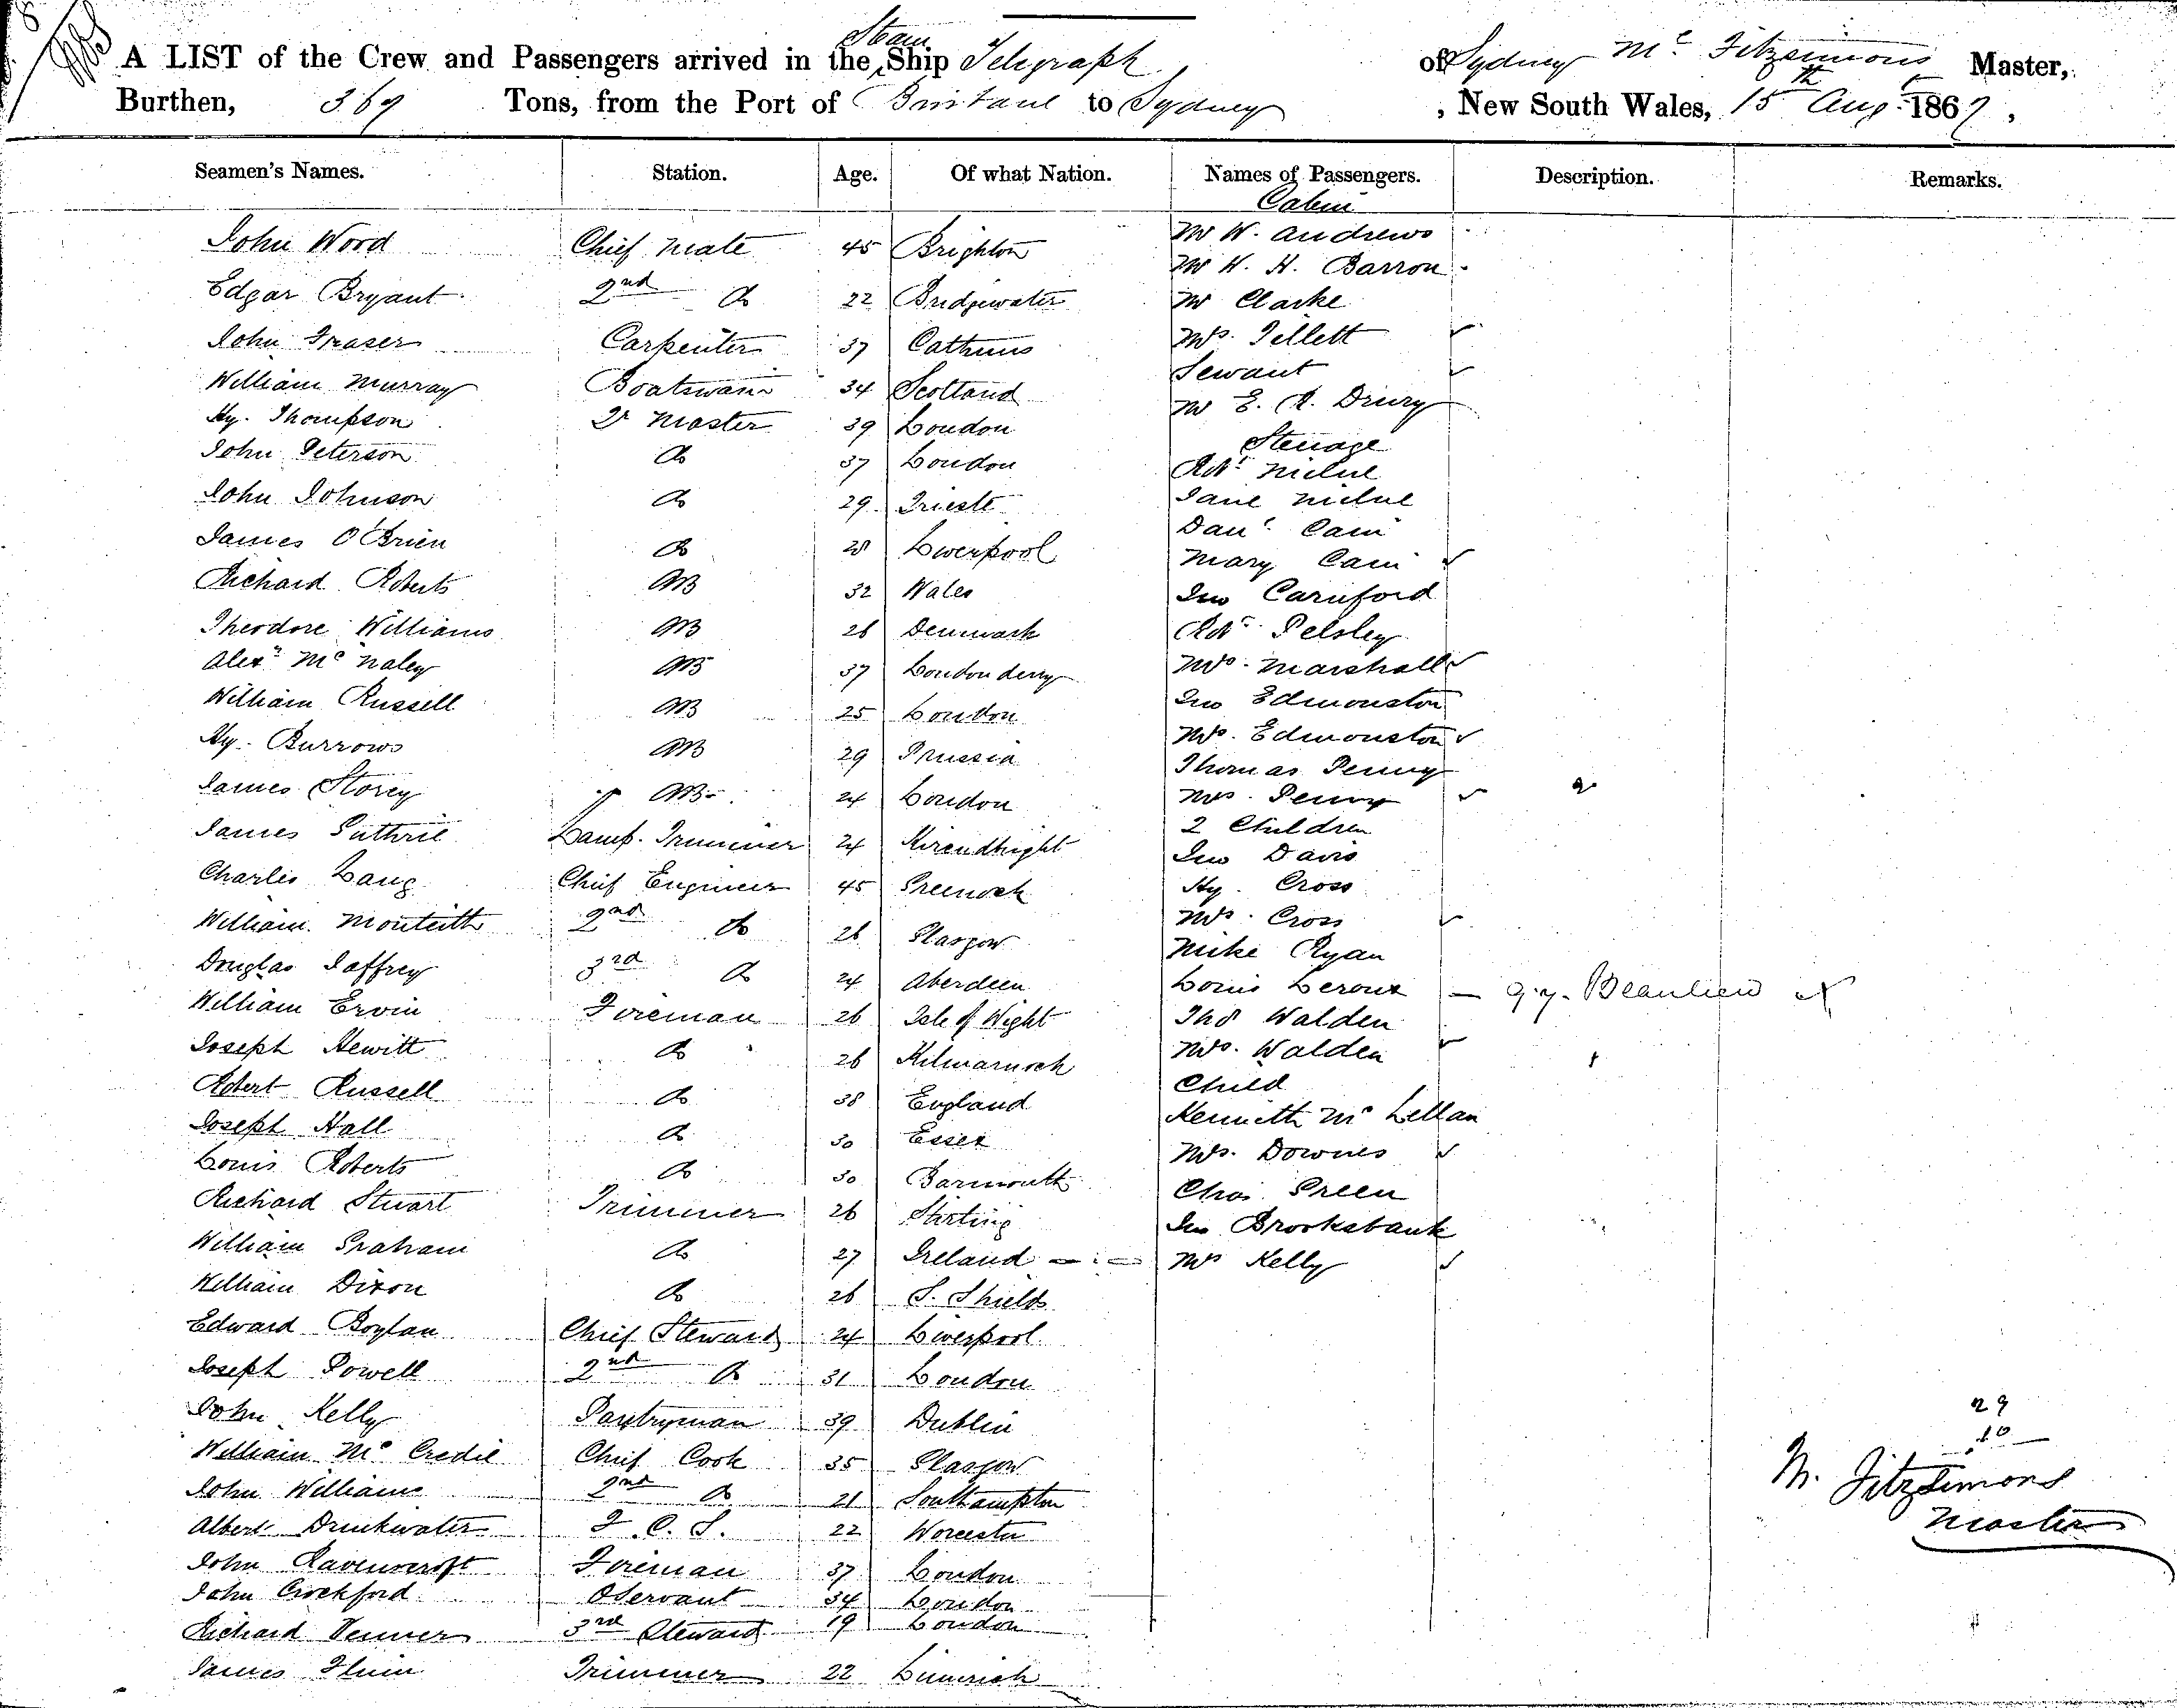 A LIST of the Crew and Passengers arrived in the Steam Ship Telegraph of Sydney Mc Fitzsimons Master,
Burthen, 369 Tons, from the Port of Brisbane to Sydney, New South Wales, 15th Aug. 1867,
Seamen's Names. Station. Age. Of what Nation. Names of Passengers. Description. Remarks.
Cabin
John Word Chief Mate 45 Brighton Mr W. Andrews
Mr H. H. Barron
Edgar Bryant 2nd Do 22 Bridgewater Mr Clarke
John Fraser Carpenter 37 Mrs. Tellett
William Murray Boatswain 34 Scotland Servant
Hy. Thompson Qr Master 39 London Mr E. R. Drury
John Peterson Do 37 London Steerage
Robt
John Johnson Do 29 Trieste Jane
James O'Brien Do 28 Liverpool Danl Cain
Mary Cain
Richard Roberts AB 32 Wales Jno Carnford
Theodore Williams AB 26 Denmark Robt Pelsley
Alexr McNaley AB 37 Londonderry Mrs. Marshall
William Russell AB 25 London Jno Edmonston
Hy. Burrows AB 29 Prussia Mrs. Edmonston
Thomas Penny
James Storey AB 24 London Mrs. Penny
2 Children
James Guthrie Lamp Trimmer 24 Jno Davis
Charles Lang Chief Engineer 45 Greenock Hy. Cross
William Monteith 2nd Do 26 Glasgow Mrs. Cross
Mike Ryan
Douglas Jaffrey 3rd Do 24 Aberdeen Louis Leroux — G.G. Beaulieu
William Ervin Fireman 26 Isle of Wight Thos Walden
Joseph Hewitt Do 26 Kilmarnock Mrs. Walden
Robert Russell Do 38 England Child
Joseph Hall Do 30 Essex Kenneth McLellan
Louis Roberts Do 30 Barmouth Mrs. Downes
Richard Stuart Trimmer 26 Stirling Chas. Green
Jno Brooksbank
William Graham Do 27 Ireland Mrs Kelly
William Dixon Do 26 S. Shields
Edward Boylan Chief Steward 24 Liverpool
Joseph Powell 2nd Do 31 London
John Kelly Pantryman 39 Dublin
William McCredie Chief Cook 35 Glasgow
John Williams 2nd Do 21 Southampton
Albert Drinkwater F. C. S. 22 Worcester
John Ravenscroft Fireman 37 London
John Crockford O Servant 34 London
Richard Venner 3rd Steward 19 London
James Flinn Trimmer 22 Limerick
29
10
M. Fitzsimons
Master